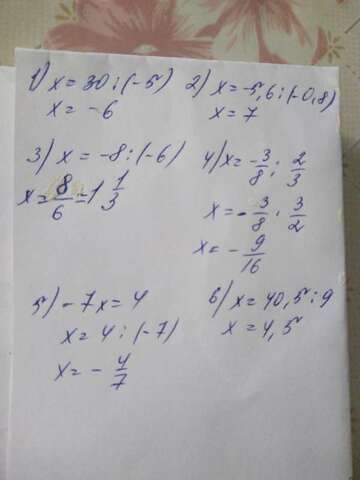 1) x = 30 : (-5)
x = -6
2) x = -5,6 : (-0,8)
x = 7
3) x = -8 : (-6)
x = 8/6 = 1 1/3
4) x = -3/8 : 2/3
x = -3/8 · 3/2
x = -9/16
5) -7x = 4
x = 4 : (-7)
x = -4/7
6) x = 40,5 : 9
x = 4,5